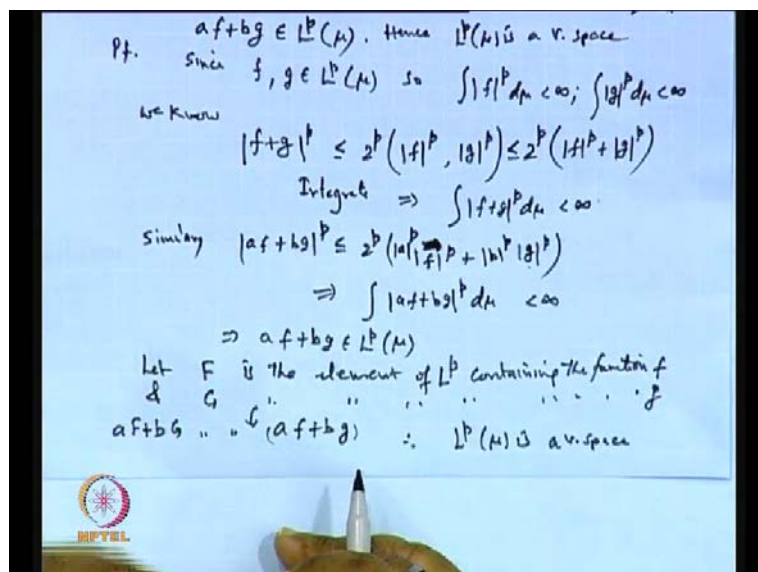 af+bg ∈ L^p(μ). Hence L^p(μ) is a v. space
Pf. Since f, g ∈ L^p(μ) so ∫|f|^p dμ < ∞; ∫|g|^p dμ < ∞
we know
|f+g|^p ≤ 2^p (|f|^p, |g|^p) ≤ 2^p (|f|^p + |g|^p)
Integrate ⇒ ∫|f+g|^p dμ < ∞
Similarly |af+bg|^p ≤ 2^p (|a|^p |f|^p + |b|^p |g|^p)
⇒ ∫|af+bg|^p dμ < ∞
⇒ af+bg ∈ L^p(μ)
Let F is the element of L^p containing the function f
& G " " " " " " " g
aF+bG " " (af+bg) ∴ L^p(μ) is a v. space
NPTEL